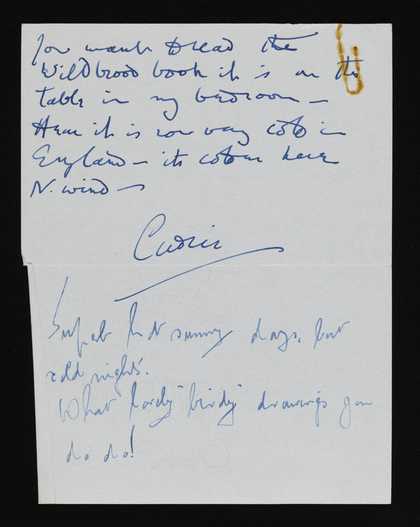 you want to read the
Wildbrood book it is on the
table in my bedroom —
Hear it is now very cold in
England — its cold here
N. wind —
Cedric
Superb hot sunny days, but
cold nights.
What lovely "birdy" drawings you
do do!